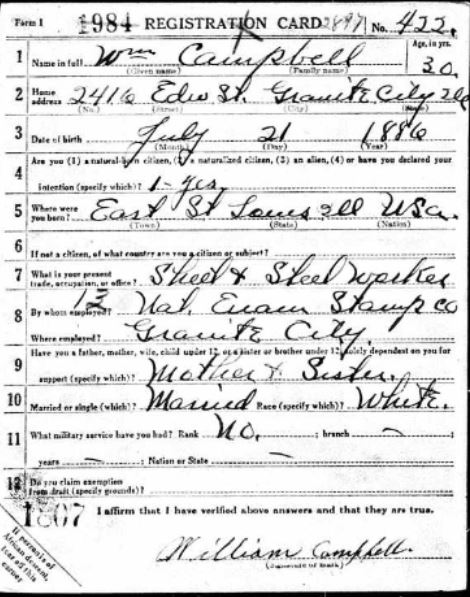 Form 1 1984 REGISTRATION CARD 2897 No. 422.
1 Name in full Wm Campbell Age, in yrs. 30.
(Given name) (Family name)
2 Home address 2416 Edw St. Granite City Ill
(No.) (Street) (City) (State)
3 Date of birth July 21 1886
(Month) (Day) (Year)
Are you (1) a natural-born citizen, (2) a naturalized citizen, (3) an alien, (4) or have you declared your
4 intention (specify which)? 1- yes
5 Where were you born? East St Louis Ill USa.
(Town) (State) (Nation)
6 If not a citizen, of what country are you a citizen or subject?
7 What is your present trade, occupation, or office? Sheet & Steel Worker
13
8 By whom employed? Nat. Enam Stamp co
Where employed? Granite City.
Have you a father, mother, wife, child under 12, or a sister or brother under 12, solely dependent on you for
9 support (specify which)? Mother & Sister.
10 Married or single (which)? Married Race (specify which)? White.
11 What military service have you had? Rank No. ; branch — ;
years — ; Nation or State —
12 Do you claim exemption from draft (specify grounds)?
1807 I affirm that I have verified above answers and that they are true.
William Campbell.
(Signature or mark)
If person is of
African descent,
tear off this
corner